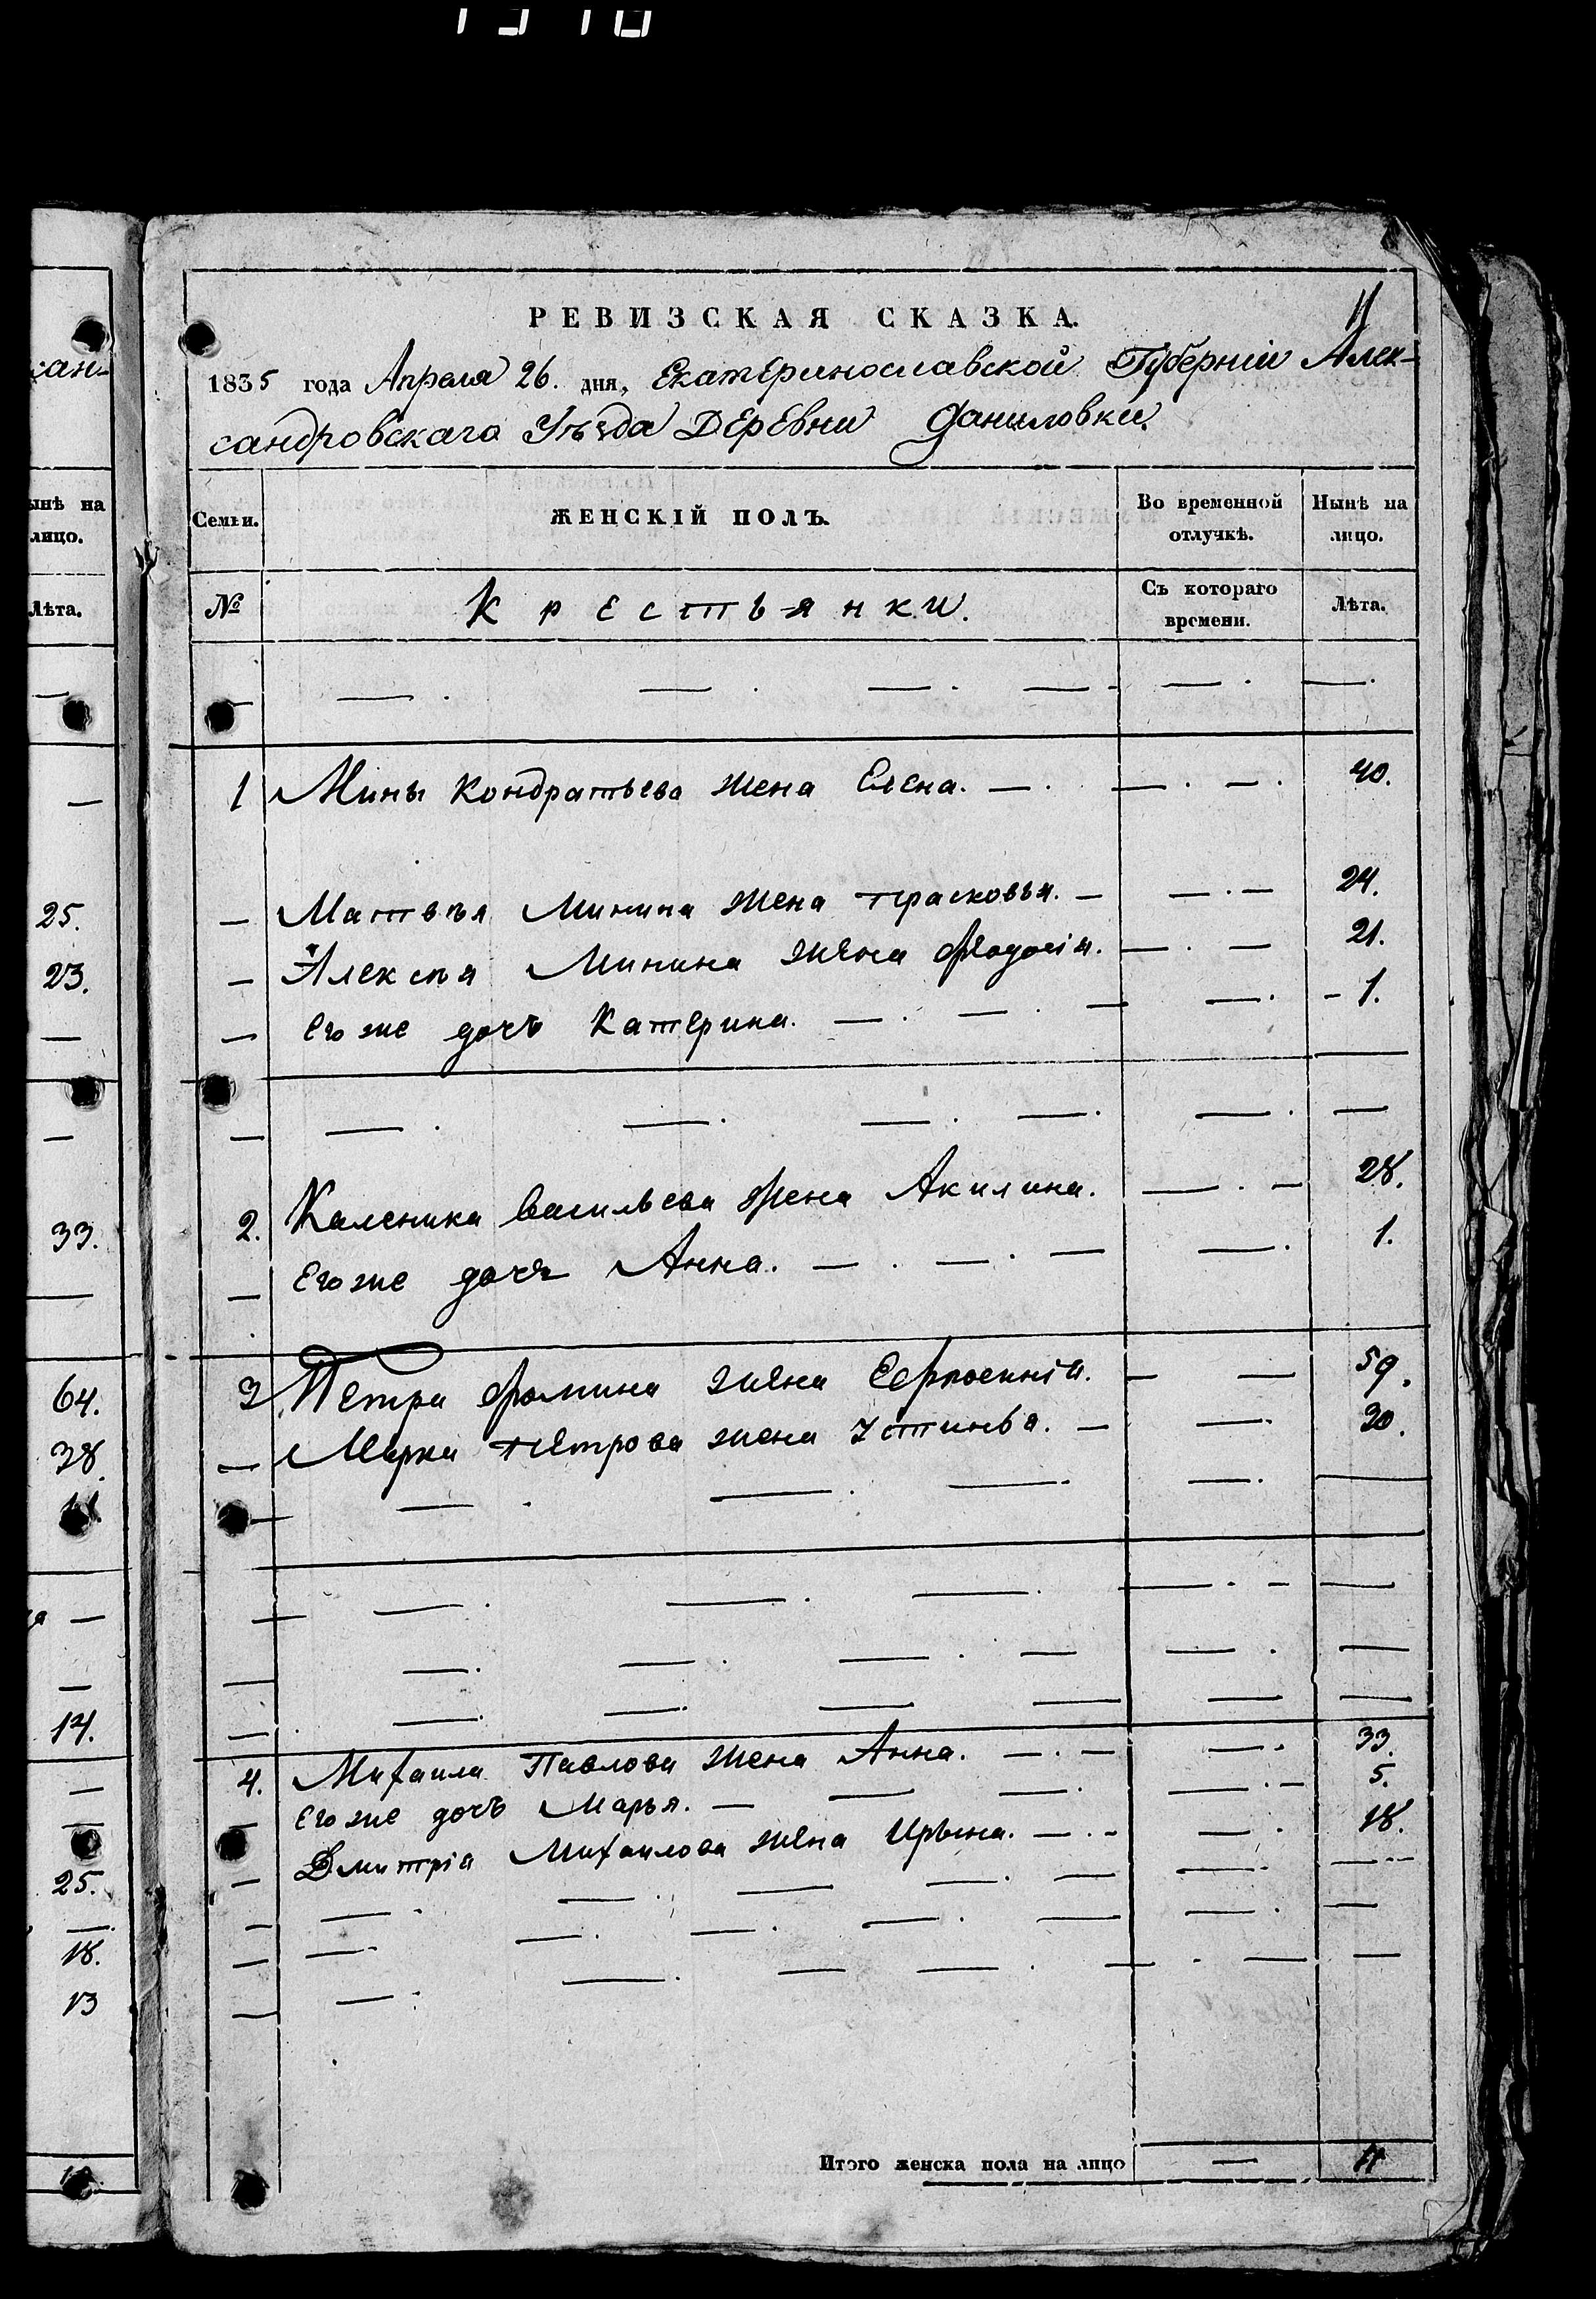 11
РЕВИЗСКАЯ СКАЗКА.
1835 года Апреля 26. дня, Екатеринославской Губерніи Алек-
сандровскаго Уѣзда Деревни Даниловки.
Семьи. ЖЕНСКІЙ ПОЛЪ. Во временной отлучкѣ. Нынѣ на лицо.
№ Крестьянки. Съ котораго времени. Лѣта.
1 Мины Кондратьева жена Елена. 40.
Матвѣя Минина жена Прасковья. 24.
Алексѣя Минина жена Ѳеодосія. 21.
Его же дочь Катерина. 1.
2. Каленика Васильева жена Акилина. 28.
Его же дочь Анна. 1.
3. Петра Фомина жена 59.
Марка Петрова жена Устинья. 30.
4. Михаила Павлова жена Анна. 33.
Его же дочь Марья. 5.
Дмитрія Михайлова жена Ирына. 18.
Итого женска пола на лицо — 11
сан-
ынѣ на
лицо.
Лѣта.
25.
23.
33.
64.
38.
14.
25.
18.
13